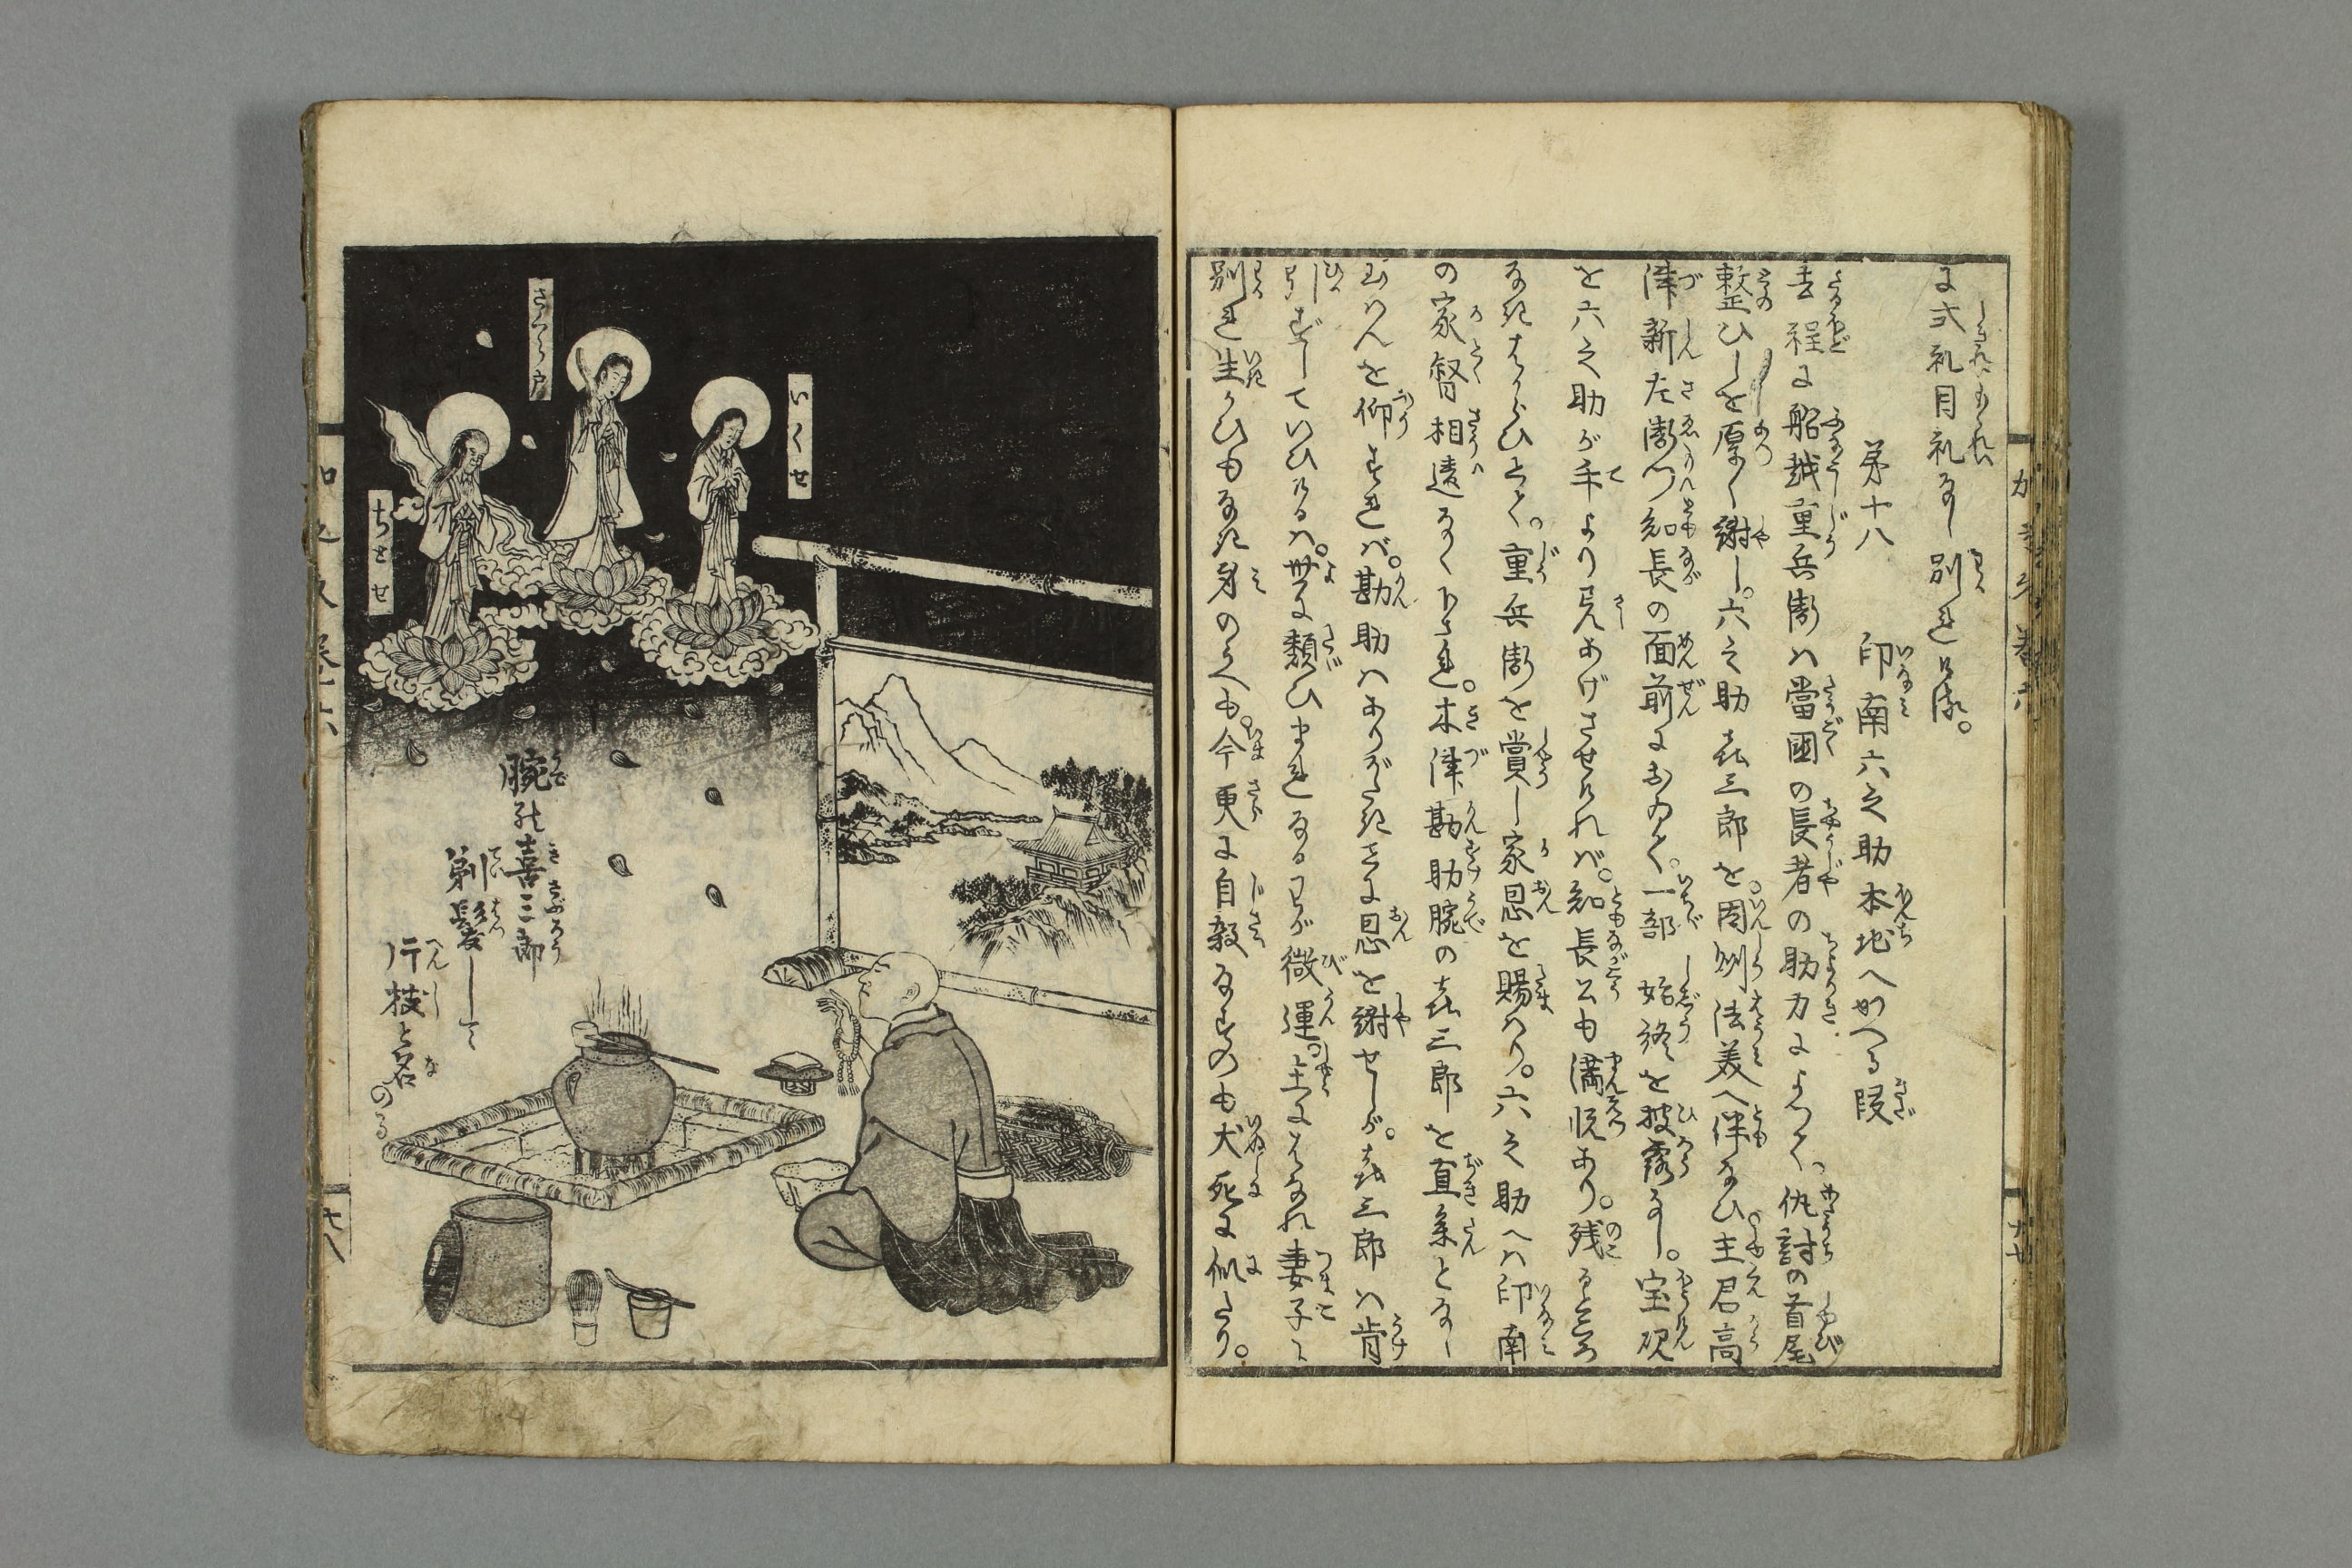 に式礼目礼なし別れける。
第十八 印南六之助本地へかへる段
去程に船越重兵衛ハ當國の長者の助力によつて、仇討の首尾
整ひしを厚く謝し。六之助喜三郎を。因州法美へ伴なひ。主君高
津新左衛門知長の面前におゐて。一部始終を披露なし。宝硯
を六之助が手より見あげさせけれバ。知長公も満悦あり。残るところ
なきはからひとて。重兵衛を賞し家恩を賜ハり。六之助へハ印南
の家督相違なく下され。木津勘助腕の喜三郎を直参となし
玉ハんと仰すれバ。勘助ハありがたきさまに恩を謝せしが。喜三郎ハ肯
引ずしていひけるハ。世に類ひまれなるわが微運。主にはなれ妻子に
別れ生がひもなき身のうへも。今更に自殺なすのも犬死に似たり。
いくせ
さくら戸
ちとせ
腕の喜三郎
剃髪して
片枝と名
のる